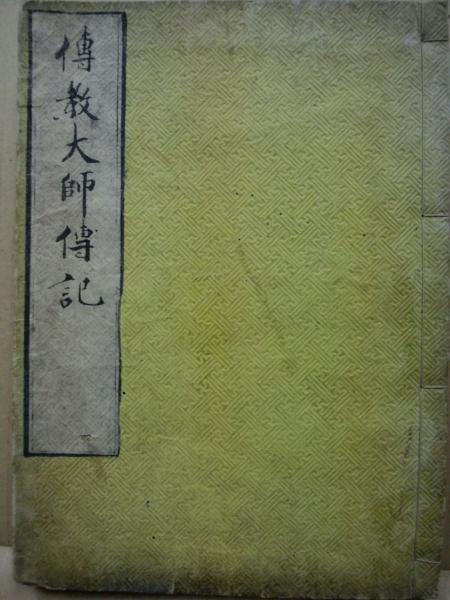 傳教大師傳記